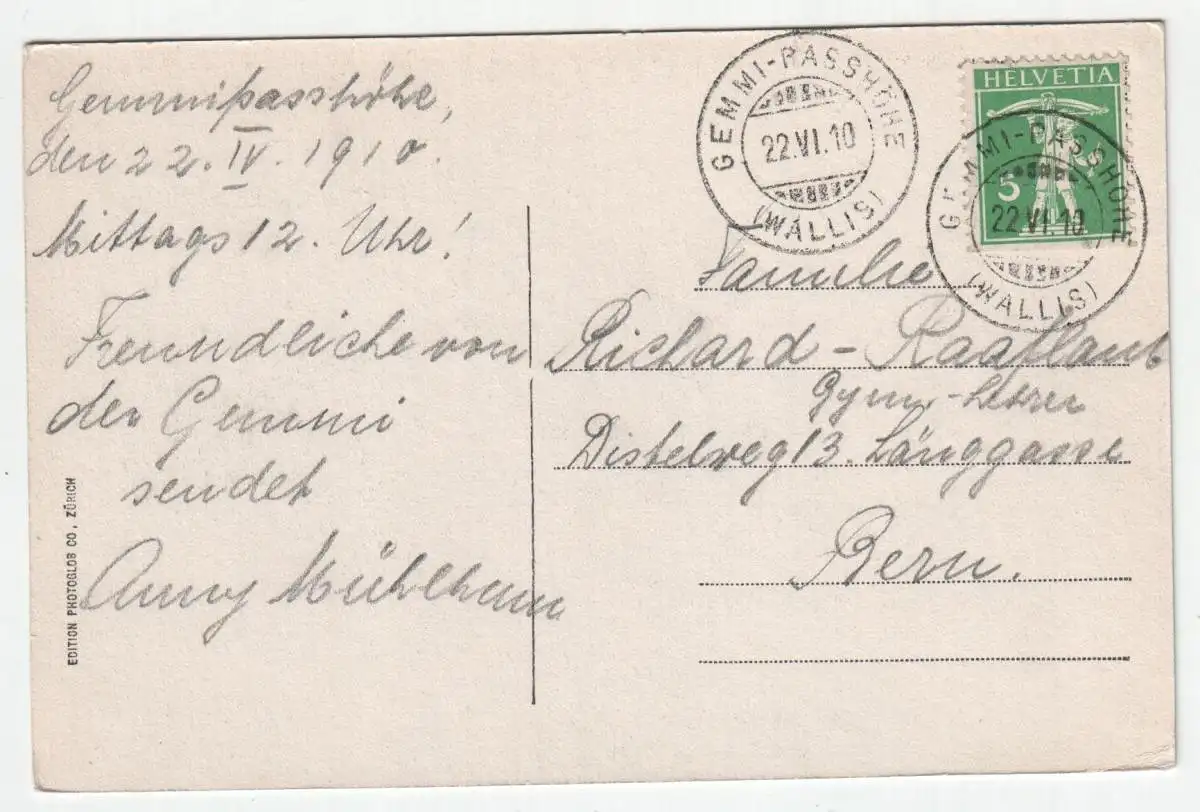 Gemmipasshöhe,
den 22. IV. 1910.
Mittags 12. Uhr!
Freundliche von
der Gemmi
sendet
Anny
EDITION PHOTOGLOB CO., ZÜRICH
GEMMI-PASSHÖHE
22.VI.10
(WALLIS)
HELVETIA
5
GEMMI-PASSHÖHE
22.VI.10
(WALLIS)
Familie
Richard - Raaflaub
Gym.-Lehrer
Distelweg 13. Länggasse
Bern.